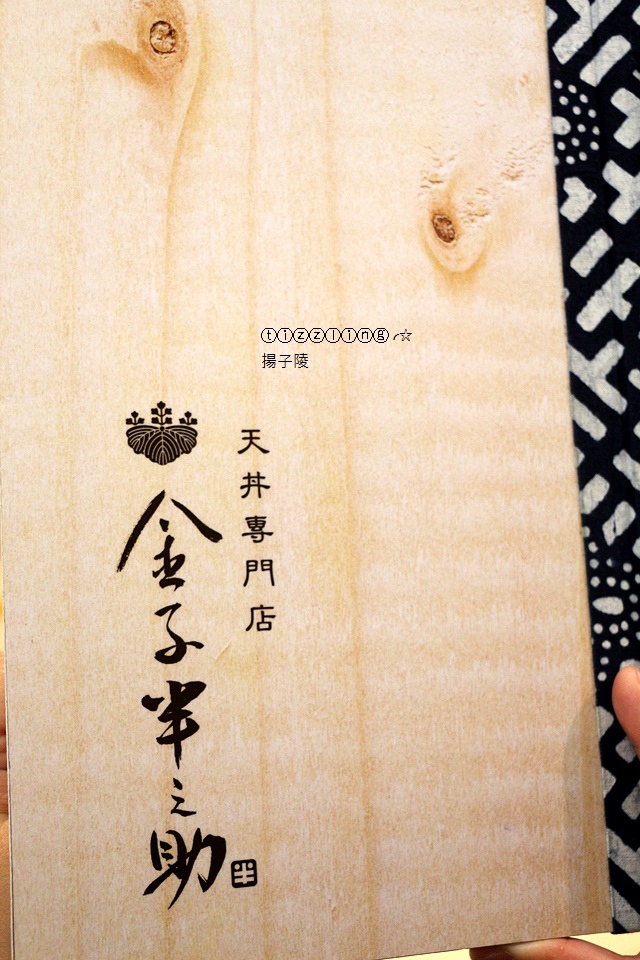 ⓣⓘⓩⓩⓛⓘⓝⓖ╭☆
揚子陵
天丼専門店
金子半之助
半